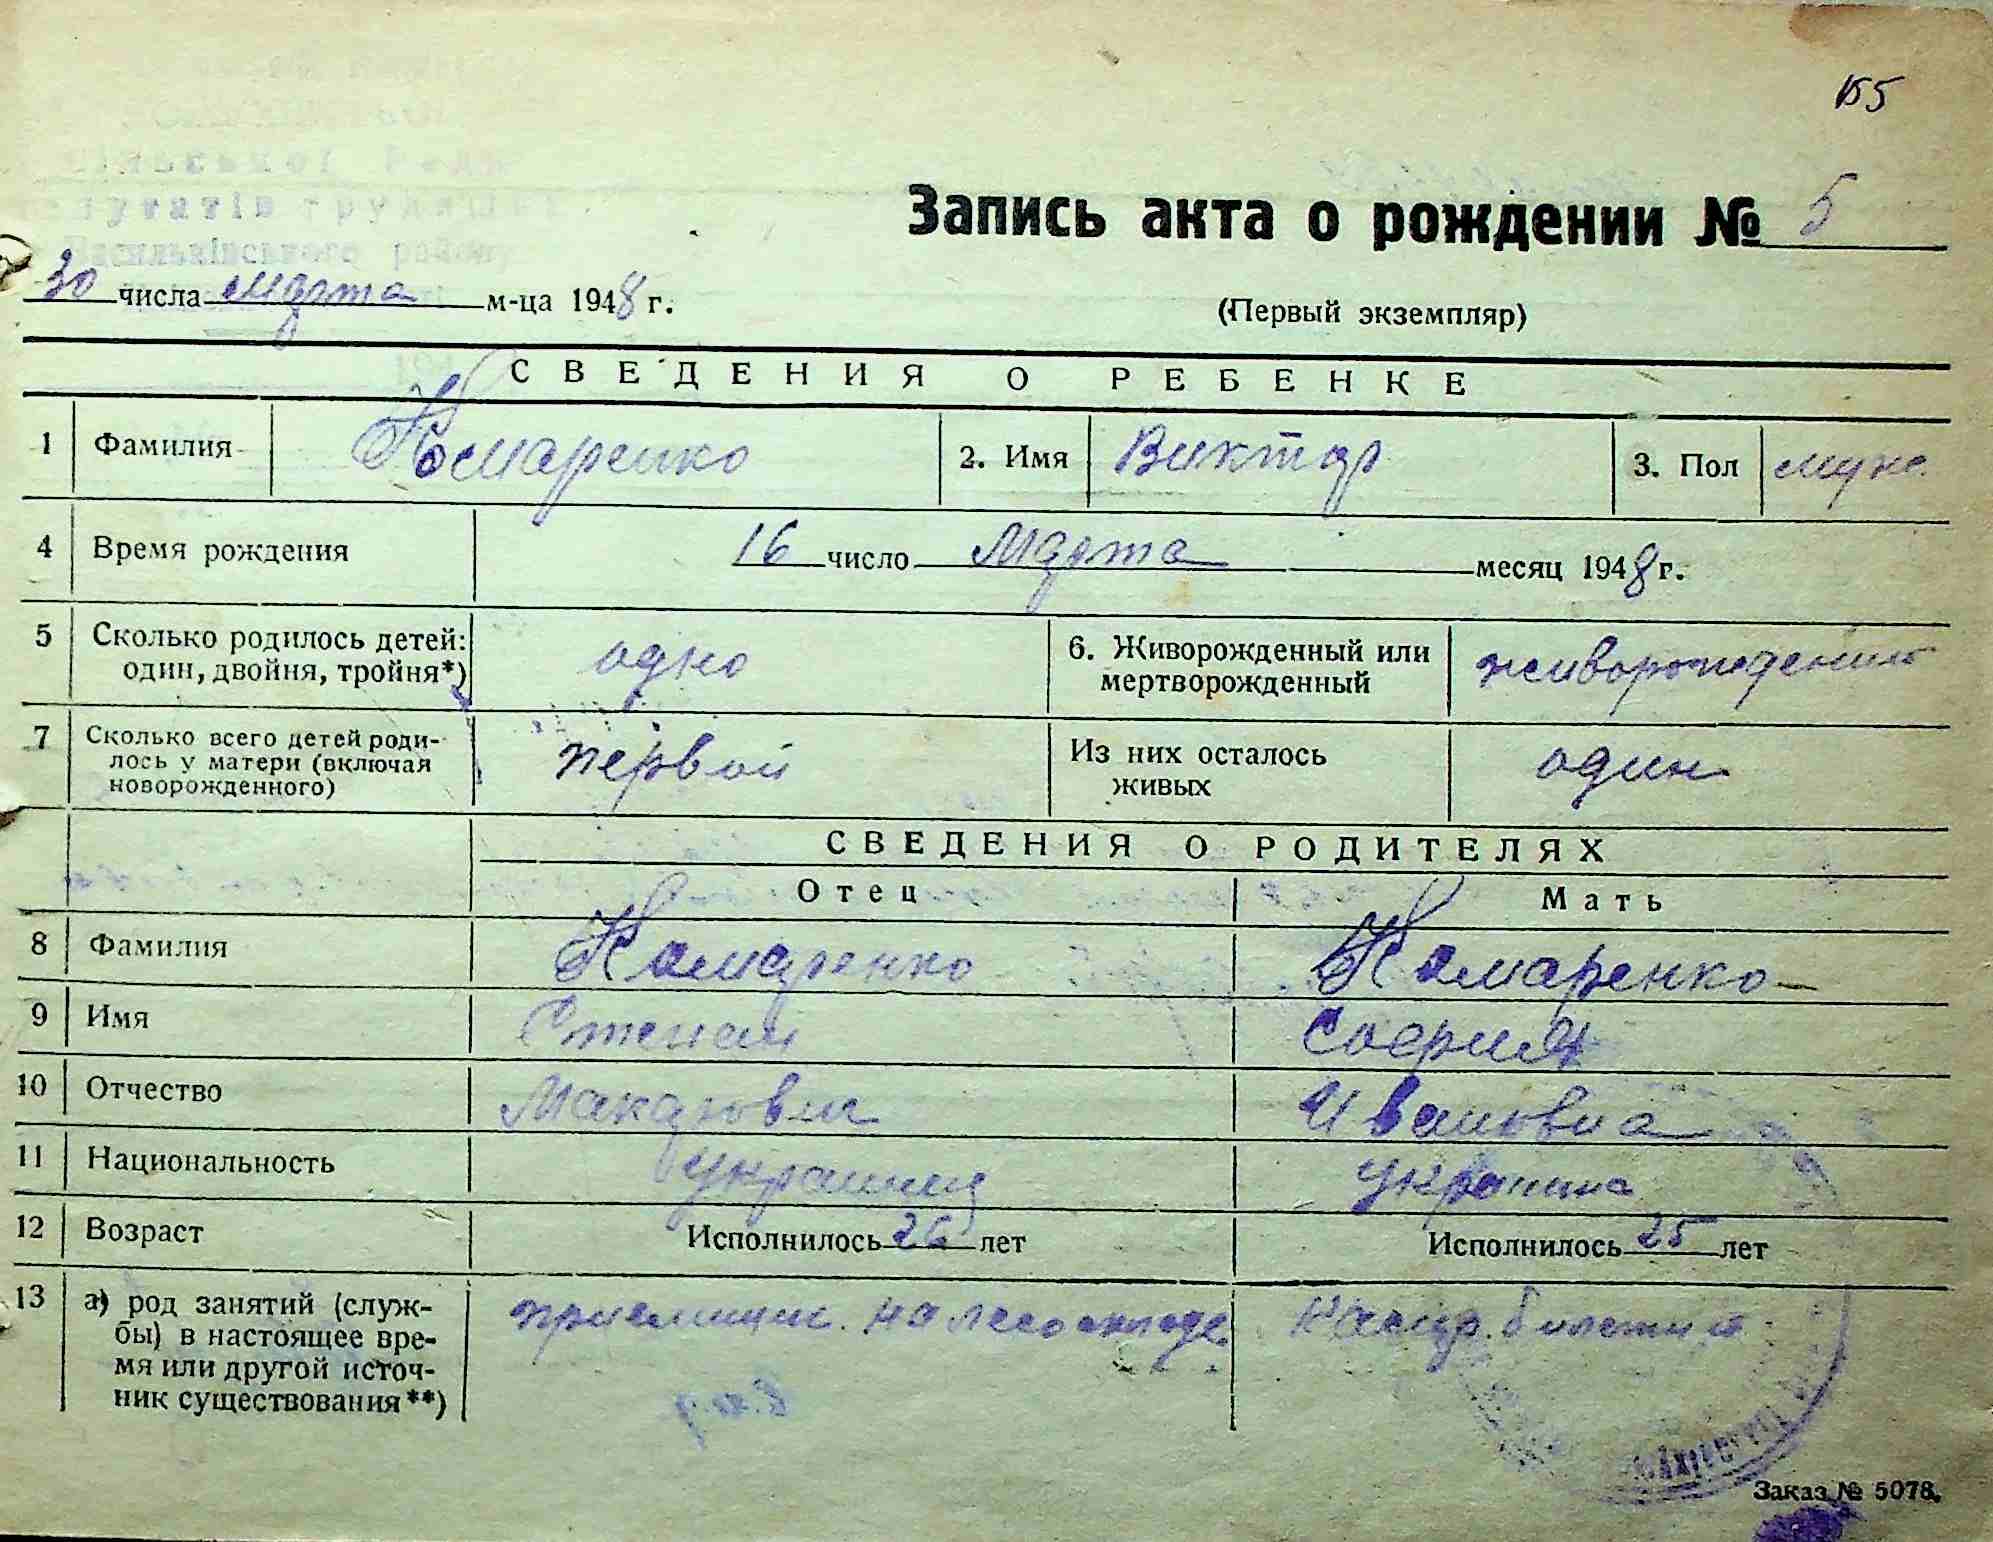 155
Запись акта о рождении № 5
30 числа марта м-ца 1948 г.
(Первый экземпляр)
СВЕДЕНИЯ О РЕБЕНКЕ
1 Фамилия Комаренко 2. Имя Виктор 3. Пол муж.
4 Время рождения 16 число Марта месяц 1948 г.
5 Сколько родилось детей: один, двойня, тройня*) одно 6. Живорожденный или мертворожденный живорожденный
7 Сколько всего детей родилось у матери (включая новорожденного) первой Из них осталось живых один
СВЕДЕНИЯ О РОДИТЕЛЯХ
Отец Мать
8 Фамилия Комаренко Комаренко
9 Имя Степан София
10 Отчество Макарович Ивановна
11 Национальность украинец украинка
12 Возраст Исполнилось 26 лет Исполнилось 25 лет
13 а) род занятий (служ-
бы) в настоящее вре-
мя или другой источ-
ник существования**)
приемщик на лесоскладе кассир билетный
Заказ № 5078.